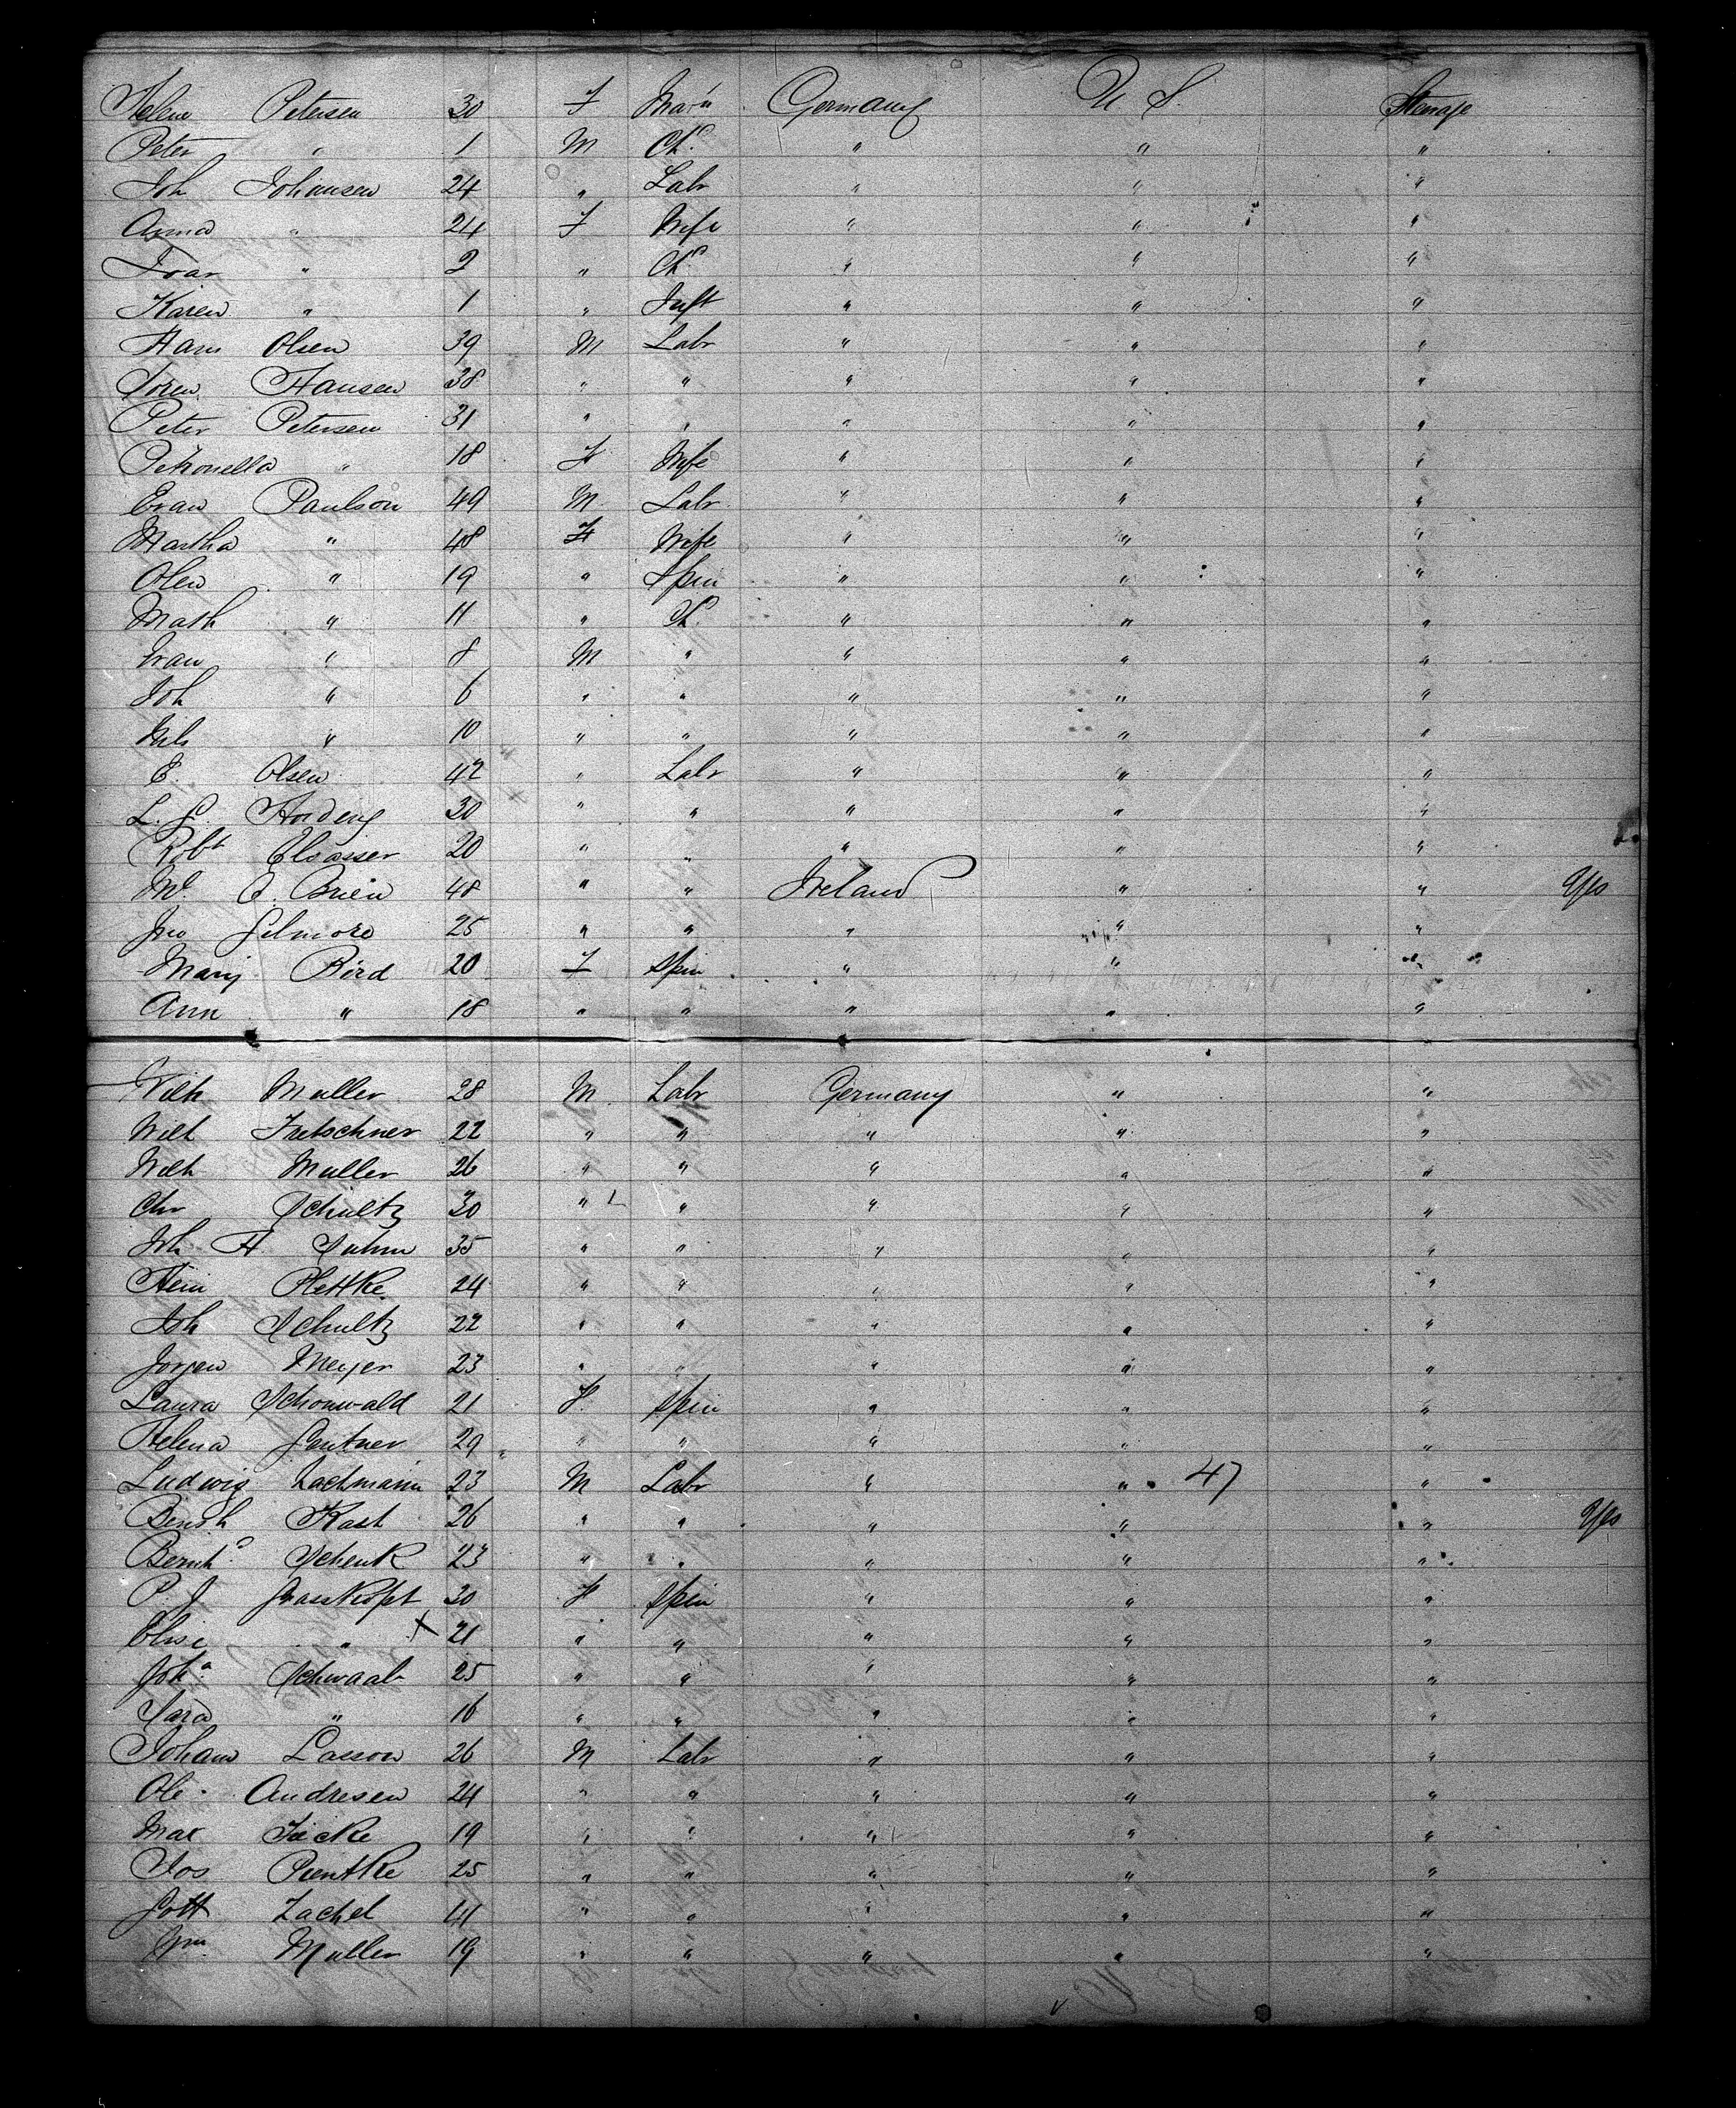 Helene Petersen 30 F Mar'd Germany U S. Steerage
Peter " 1 M Ch. " " "
Joh Johansen 24 " Labr " " "
Anna " 24 F Wife " " "
Ivar " 2 " Ch. " " "
Karen " 1 " Inft " " "
Hans Olsen 39 M Labr " " "
Soren Hansen 38 " " " " "
Peter Petersen 31 " " " " "
Petronella " 18 F Wife " " "
Evan Paulson 49 M Labr " " "
Martha " 48 F Wife " " "
Olen " 19 " Spin " " "
Math " 11 " Ch. " " "
Ivan " 8 M " " " "
Joh " 6 " " " " "
Nils " 10 " " " " "
E. Olsen 42 " Labr " " "
L. G. 30 " " " " "
Robt Elsasser 20 " " " " "
Ml O. Brien 48 " " Ireland " " Yes
Jno Gilmore 25 " " " " "
Mary Bird 20 F Spin " " "
Ann " 18 " " " " "
Wilh Muller 28 M Labr Germany " "
Wilh Fretschner 22 " " " " "
Wilh Muller 26 " " " " "
Chr Schultz 30 " " " " "
Joh H Suhm 35 " " " " "
Hein Plettke 24 " " " " "
Joh Schultz 22 " " " " "
Jorgen Meyer 23 " " " " "
Laura Schonwald 21 F Spin " " "
Helena Gentner 29 " " " " "
Ludwig Lachmann 23 M Labr " " 47 "
Kast 26 " " " " " Yes
Bernhd Schenk 23 " " " " "
P. J. 20 F Spin " " "
Elise " X 21 " " " " "
Joha Schwaab 25 " " " " "
Sara " 16 " " " " "
Johann Lasson 26 M Labr " " "
Ole Andresen 24 " " " " "
Max Jacke 19 " " " " "
Jos Pientke 25 " " " " "
Gott Zachel 41 " " " " "
Wm Muller 19 " " " " "